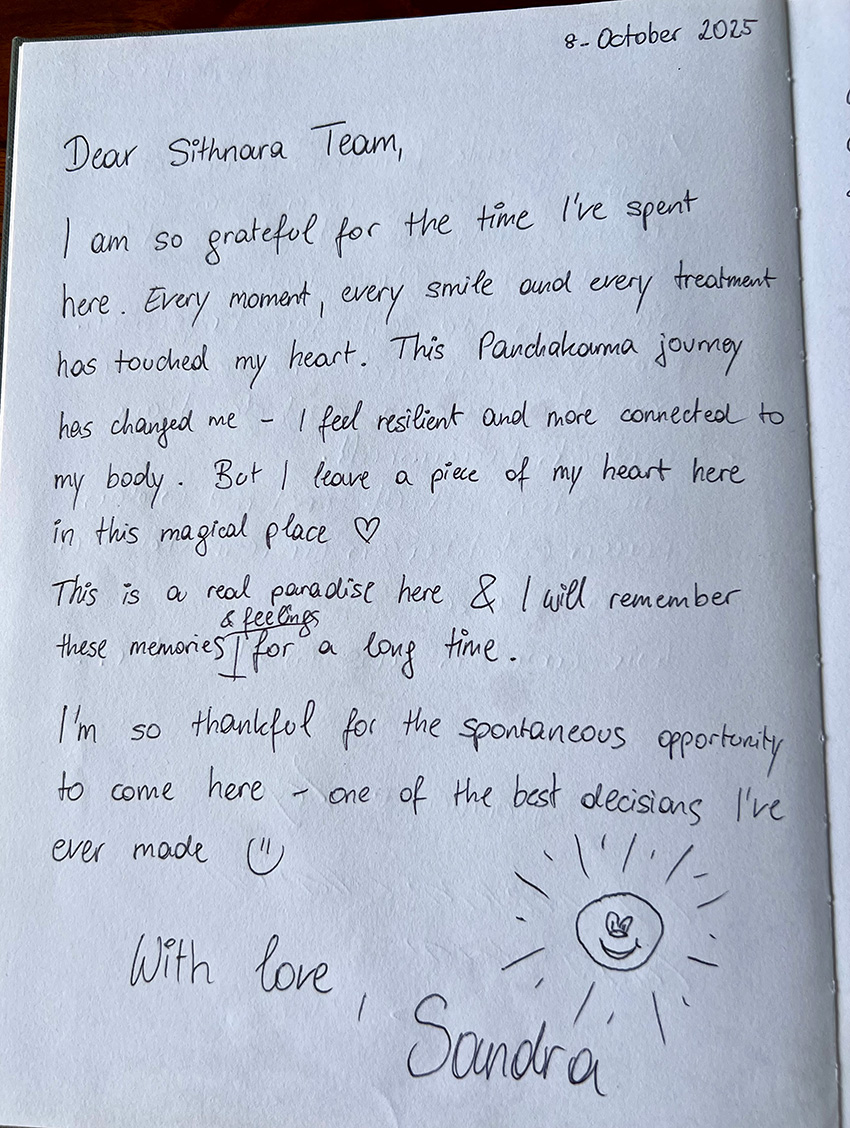 8- October 2025
Dear Sithnara Team,
I am so grateful for the time I've spent
here. Every moment, every smile and every treatment
has touched my heart. This Panchakarma journey
has changed me - I feel resilient and more connected to
my body. But I leave a piece of my heart here
in this magical place ♡
This is a real paradise here & I will remember
& feelings
these memories for a long time.
I'm so thankful for the spontaneous opportunity
to come here - one of the best decisions I've
ever made
With love,
Sandra